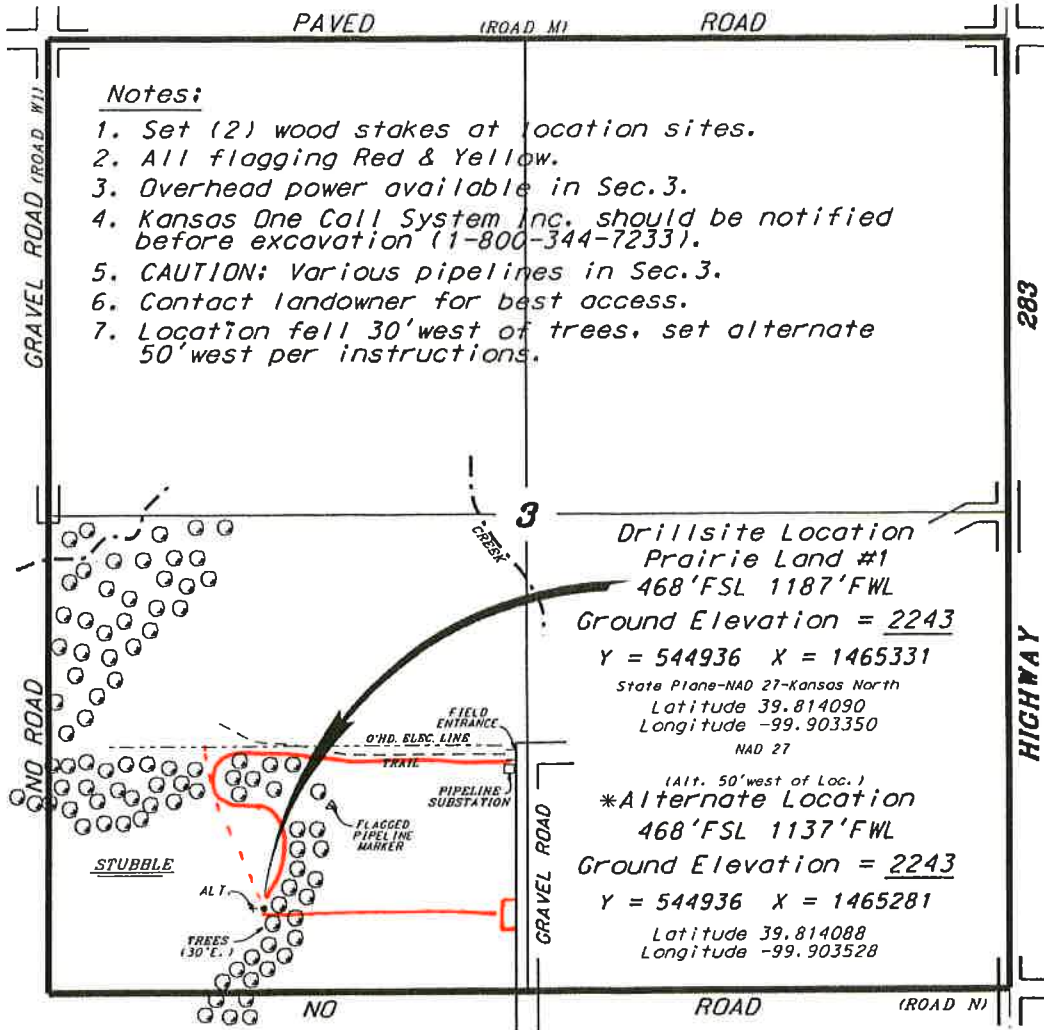 PAVED (ROAD M) ROAD
GRAVEL ROAD (ROAD W1)
Notes:
1. Set (2) wood stakes at location sites.
2. All flagging Red & Yellow.
3. Overhead power available in Sec.3.
4. Kansas One Call System Inc. should be notified
before excavation (1-800-344-7233).
5. CAUTION: Various pipelines in Sec.3.
6. Contact landowner for best access.
7. Location fell 30'west of trees, set alternate
50'west per instructions.
283
HIGHWAY
3
CREEK
Drillsite Location
Prairie Land #1
468'FSL 1187'FWL
Ground Elevation = 2243
Y = 544936 X = 1465331
State Plane-NAD 27-Kansas North
Latitude 39.814090
Longitude -99.903350
NAD 27
(Alt. 50'west of Loc.)
*Alternate Location
468'FSL 1137'FWL
Ground Elevation = 2243
Y = 544936 X = 1465281
Latitude 39.814088
Longitude -99.903528
NO ROAD
FIELD
ENTRANCE
O'HD. ELEC. LINE
TRAIL
PIPELINE
SUBSTATION
FLAGGED
PIPELINE
MARKER
STUBBLE
ALT
TREES
(30'E.)
GRAVEL ROAD
NO ROAD (ROAD N)